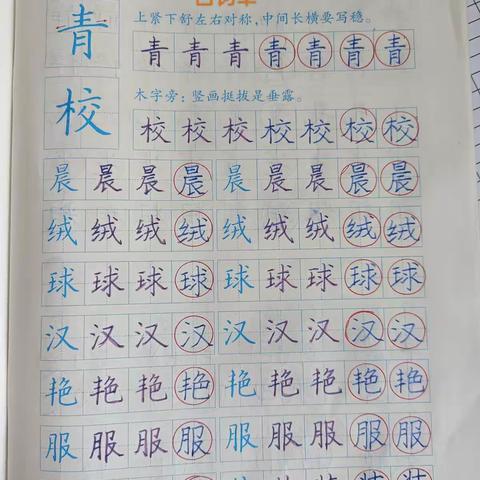 青
上紧下舒左右对称,中间长横要写稳。
青青青青青青青
校
木字旁:竖画挺拔是垂露。
校校校校校校校
晨晨晨晨晨晨晨晨晨
绒绒绒绒绒绒绒绒绒
球球球球球球球球球
汉汉汉汉汉汉汉汉汉
艳艳艳艳艳艳艳艳艳
服服服服服服服服服